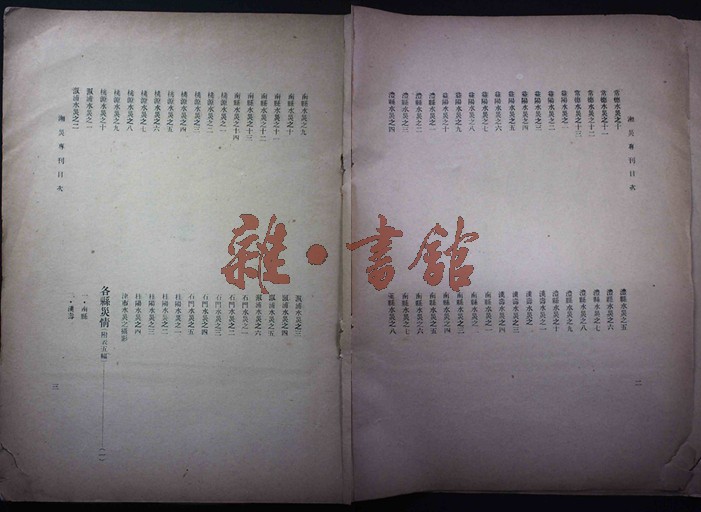 湘災專刊目次
常德水災之十
常德水災之十一
常德水災之十二
常德水災之十三
益陽水災之一
益陽水災之二
益陽水災之三
益陽水災之四
益陽水災之五
益陽水災之六
益陽水災之七
益陽水災之八
益陽水災之九
益陽水災之十
澧縣水災之一
澧縣水災之二
澧縣水災之三
澧縣水災之四
澧縣水災之五
澧縣水災之六
澧縣水災之七
澧縣水災之八
澧縣水災之九
澧縣水災之十
漢壽水災之一
漢壽水災之二
漢壽水災之三
漢壽水災之四
南縣水災之一
南縣水災之二
南縣水災之三
南縣水災之四
南縣水災之五
南縣水災之六
南縣水災之七
南縣水災之八
二
南縣水災之九
南縣水災之十
南縣水災之十一
南縣水災之十二
南縣水災之十三
南縣水災之十四
桃源水災之一
桃源水災之二
桃源水災之三
桃源水災之四
桃源水災之五
桃源水災之六
桃源水災之七
桃源水災之八
桃源水災之九
桃源水災之十
漵浦水災之一
漵浦水災之二
漵浦水災之三
漵浦水災之四
漵浦水災之五
漵浦水災之六
石門水災之一
石門水災之二
石門水災之三
石門水災之四
石門水災之五
桂陽水災之一
桂陽水災之二
桂陽水災之三
桂陽水災之四
津市水災之攝影
各縣災情(附表五幅)——(一)
一・南縣
二・漢壽
湘災專刊目次
三
雜・書館